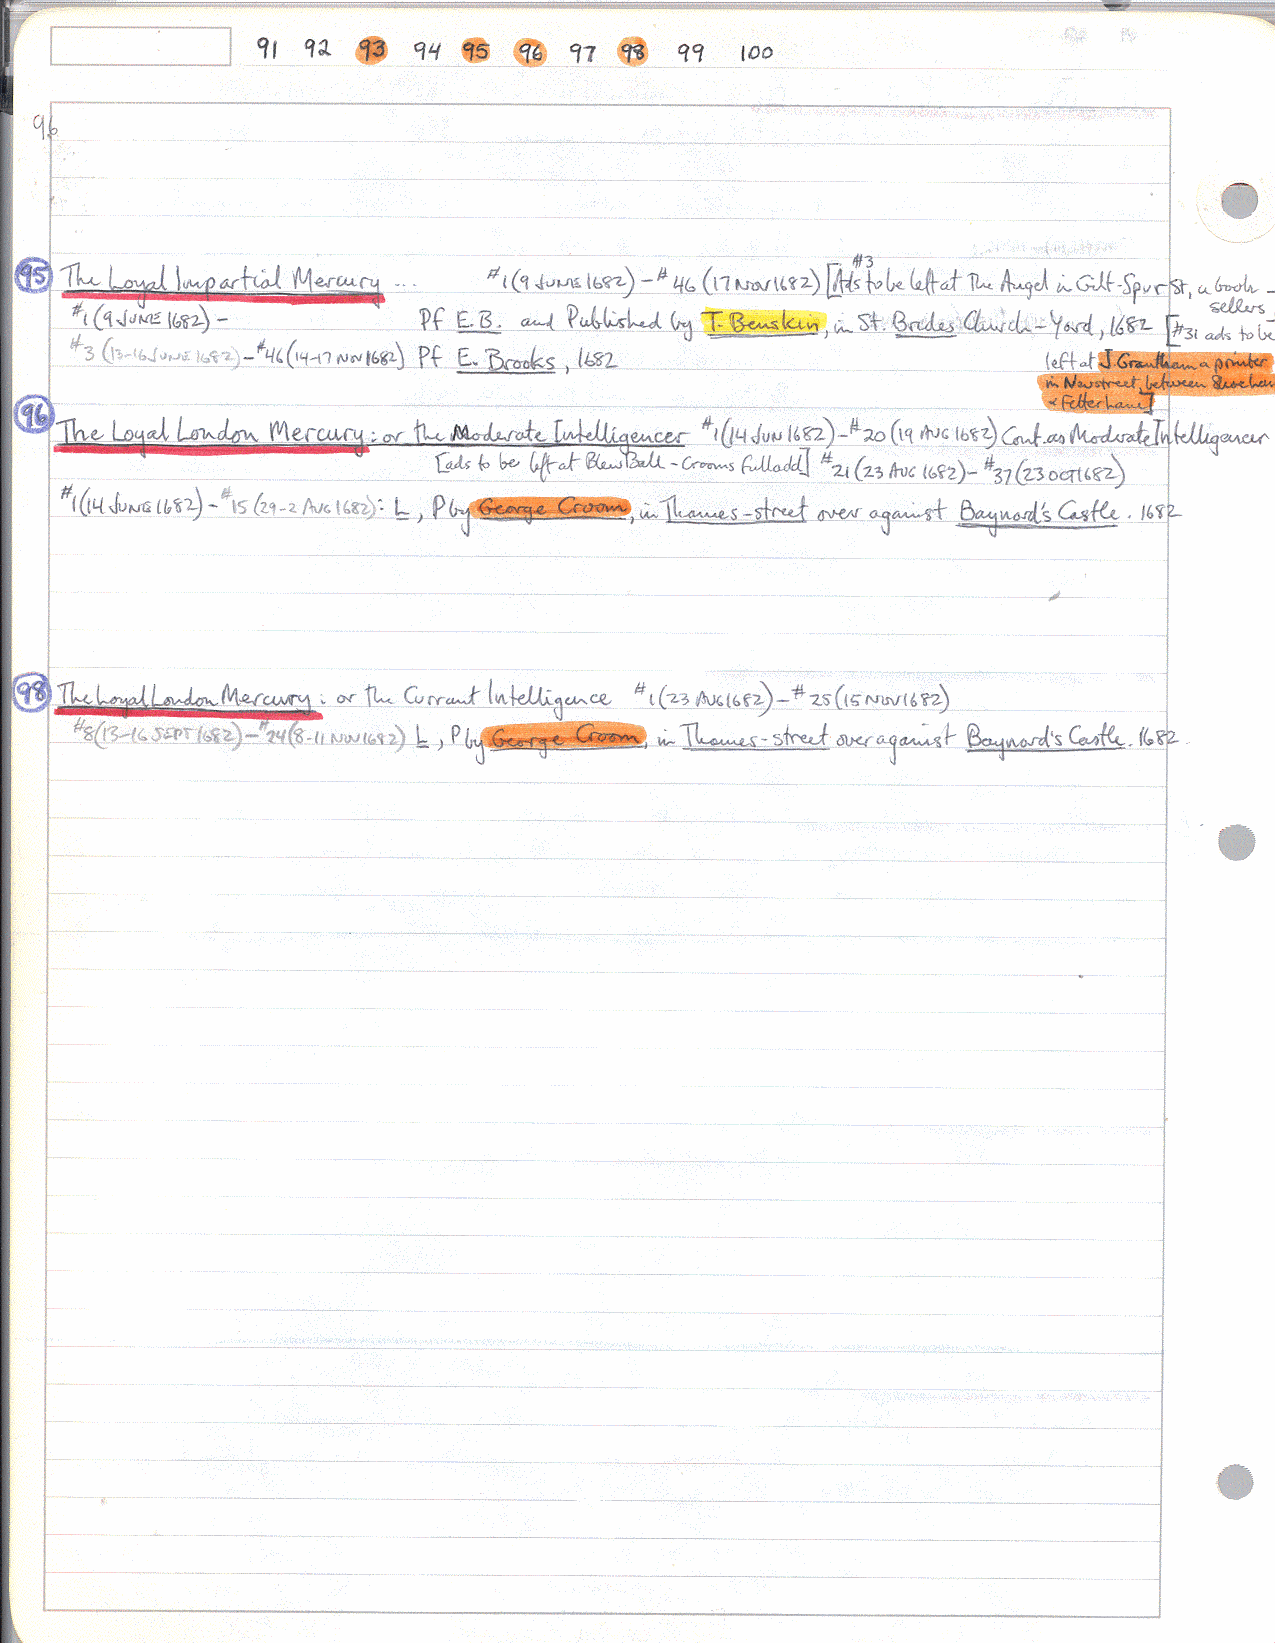 91 92 93 94 95 96 97 98 99 100
96
95 The Loyal Impartial Mercury ... #1 (9 JUNE 1682) – #46 (17 NOV 1682) [#3 Ads to be left at The Angel in Gilt-Spur St, a book-sellers
#1 (9 JUNE 1682) – Pf E.B. and Published by T. Benskin, in St. Brides Church-Yard, 1682 [#31 ads to be
#3 (13-16 JUNE 1682) – #46 (14-17 NOV 1682) Pf E. Brooks, 1682 left at J. Grantham a printer
in Newstreet, between
& Fetter Lane]
96 The Loyal London Mercury: or the Moderate Intelligencer #1 (14 JUN 1682) – #20 (19 AUG 1682) Cont. as Moderate Intelligencer
[ads to be left at Blew Ball - Crooms full add] #21 (23 AUG 1682) – #37 (23 OCT 1682)
#1 (14 JUNE 1682) – #15 (29-2 AUG 1682): L, P by George Croom, in Thames-street over against Baynard's Castle. 1682
98 The Loyal London Mercury: or the Currant Intelligence #1 (23 AUG 1682) – #25 (15 NOV 1682)
#8 (13-16 SEPT 1682) – #24 (8-11 NOV 1682) L, P by George Croom, in Thames-street over against Baynard's Castle. 1682